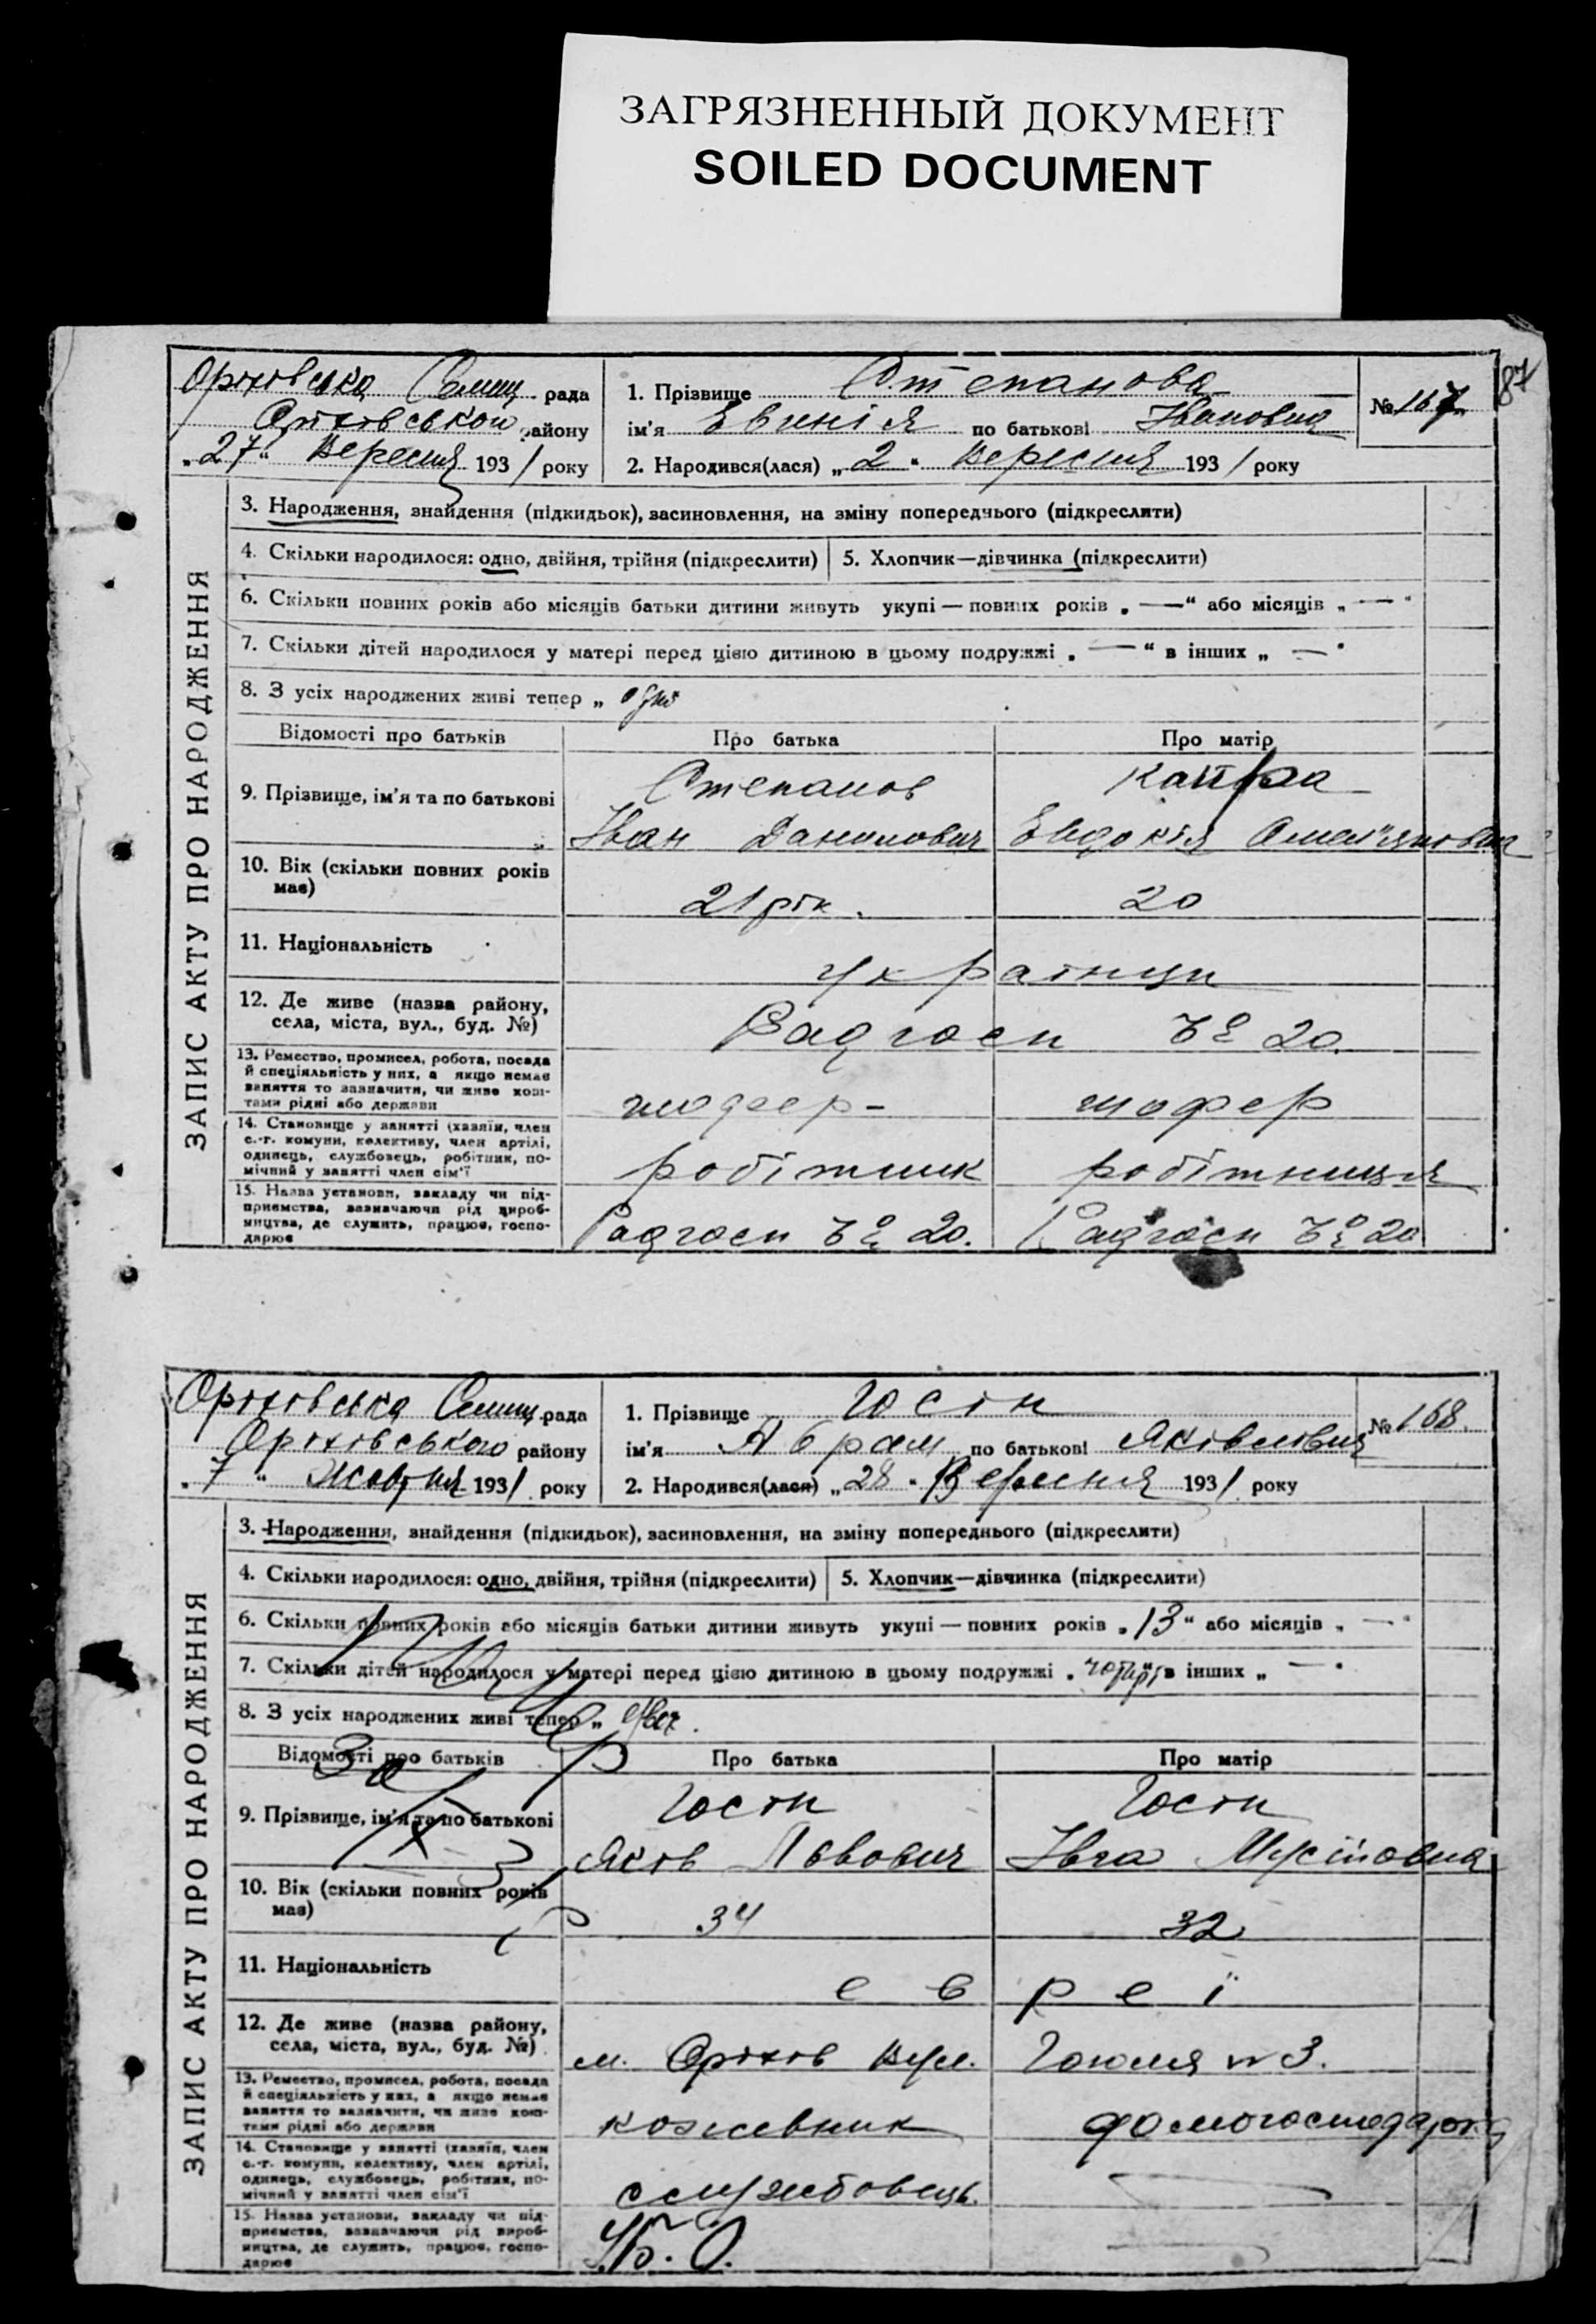 ЗАГРЯЗНЕННЫЙ ДОКУМЕНТ
SOILED DOCUMENT
87
Оріхівська Селищ. рада
Оріхівського району
„27“ Вересня 1931 року
1. Прізвище Степанова
ім’я Евгенія по батькові Івановна
№ 167
2. Народився(лася) „2“ Вересня 1931 року
ЗАПИС АКТУ ПРО НАРОДЖЕННЯ
3. Народження, знайдення (підкидьок), засиновлення, на зміну попереднього (підкреслити)
4. Скільки народилося: одно, двійня, трійня (підкреслити)
5. Хлопчик—дівчинка (підкреслити)
6. Скільки повних років або місяців батьки дитини живуть укупі — повних років „—“ або місяців „—“
7. Скільки дітей народилося у матері перед цією дитиною в цьому подружжі „—“ в інших „—“
8. З усіх народжених живі тепер „ одно
Відомості про батьків Про батька Про матір
9. Прізвище, ім’я та по батькові
Степанов
Іван Данилович
Евдокія Омел'яновна
10. Вік (скільки повних років має)
21 рік. 20
11. Національність
українці
12. Де живе (назва району, села, міста, вул., буд. №)
Радгосп № 20.
13. Ремество, промисел, робота, посада й спеціяльність у них, а якщо немає заняття то зазначити, чи живе коштами рідні або держави
шофер - шофер
14. Становище у занятті (хазяїн, член с.-г. комуни, колективу, член артілі, одинець, службовець, робітник, помічний у занятті член сім’ї
робітник робітниця
15. Назва установи, закладу чи підприємства, зазначаючи рід виробництва, де служить, працює, господарює
Радгосп № 20. Радгосп № 20
Оріхівська Селищ. рада
Оріхівського району
„7“ Жовтня 1931 року
1. Прізвище Юсін
ім’я Абрам по батькові Яковлевич
№ 168.
2. Народився(лася) „28“ Вересня 1931 року
ЗАПИС АКТУ ПРО НАРОДЖЕННЯ
3. Народження, знайдення (підкидьок), засиновлення, на зміну попереднього (підкреслити)
4. Скільки народилося: одно, двійня, трійня (підкреслити)
5. Хлопчик—дівчинка (підкреслити)
6. Скільки повних років або місяців батьки дитини живуть укупі — повних років „13“ або місяців „—“
7. Скільки дітей народилося у матері перед цією дитиною в цьому подружжі „ в інших „—“
8. З усіх народжених живі тепер „
Відомості про батьків Про батька Про матір
9. Прізвище, ім’я та по батькові
Юсін Юсін
Яков Львович
10. Вік (скільки повних років має)
34 32
11. Національність
евреї
12. Де живе (назва району, села, міста, вул., буд. №)
м. Оріхів вул. Гоголя №3.
13. Ремество, промисел, робота, посада й спеціяльність у них, а якщо немає заняття то зазначити, чи живе коштами рідні або держави
кожевник домогосподарка
14. Становище у занятті (хазяїн, член с.-г. комуни, колективу, член артілі, одинець, службовець, робітник, помічний у занятті член сім’ї
службовець.
15. Назва установи, закладу чи підприємства, зазначаючи рід виробництва, де служить, працює, господарює